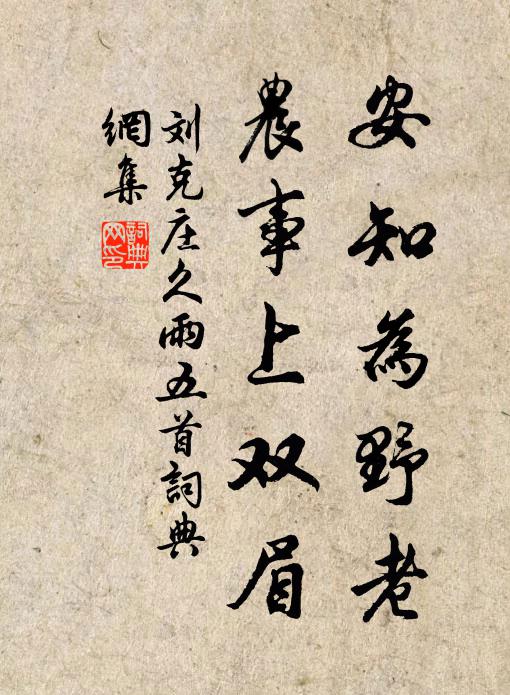 安知為野老
農事上双眉
刘克庄久雨五首詞典
網集
詞典
网印